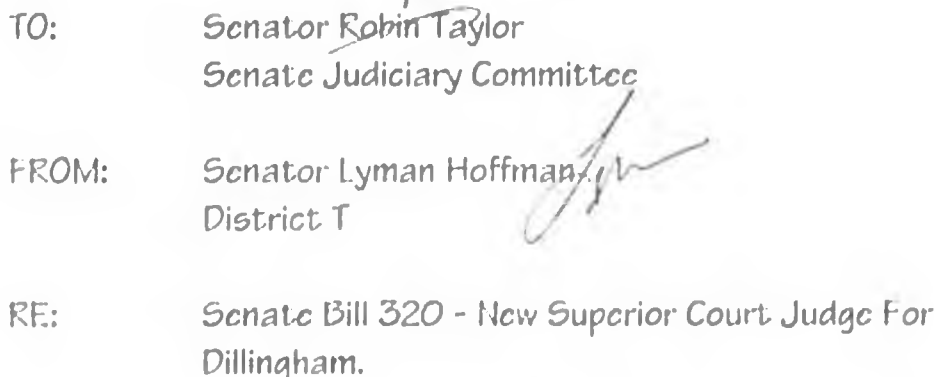 TO: Senator Robin Taylor
Senate Judiciary Committee
FROM: Senator Lyman Hoffman
District T
RE: Senate Bill 320 - New Superior Court Judge For
Dillingham.